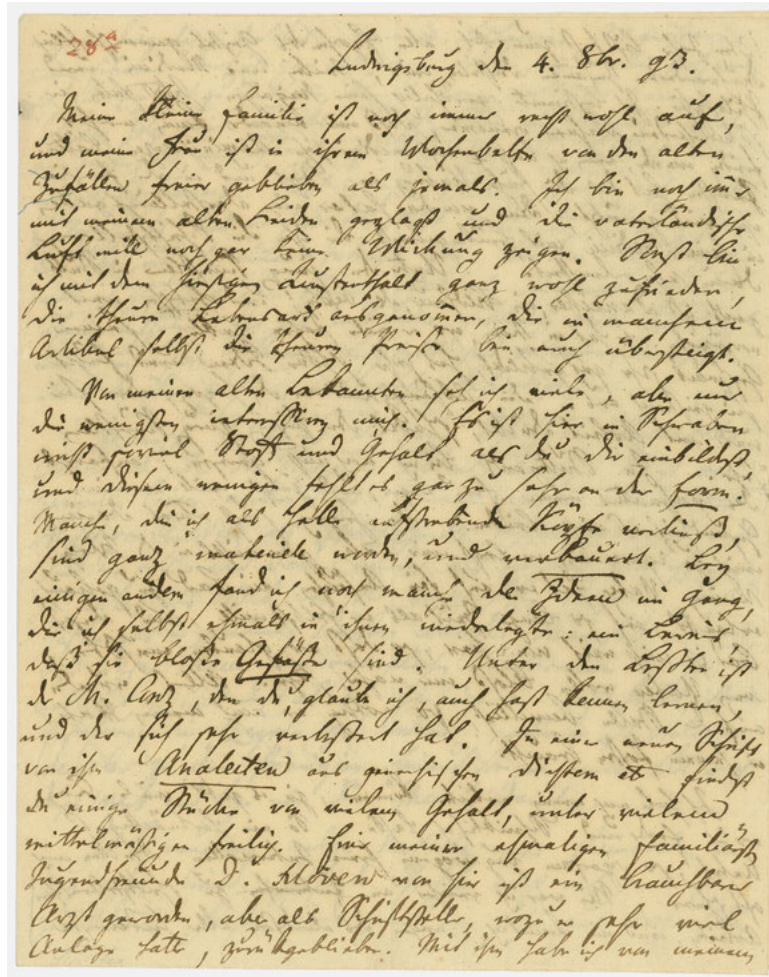 28a
Ludwigsburg den 4. 8br. 93.
Meine kleine Familie ist noch immer recht wohl auf,
und meine Frau ist in ihrem Wochenbette von den alten
Zufällen freier geblieben als jemals. Ich bin noch imer
mit meinem alten Leiden geplagt und die vaterländische
Luft will noch gar keine Wirkung zeigen. Sonst bin
ich mit dem hiesigen Aufenthalt ganz wohl zufrieden,
die theure Lebensart ausgenomen, die in manchem
Artikel selbst die theuren Preise bei euch übersteigt.
Von meinen alten Bekannten seh ich viele, aber nur
die wenigsten interessiren mich. Es ist hier in Schwaben
nicht soviel Stoff und Gehalt als du dir einbildest,
und diesen wenigen fehlt es gar zu sehr an der Form.
Manche, die ich als helle aufstrebende Köpfe verließ,
sind ganz materiell worden, und verbauert. Bey
einigen andern fand ich noch manche der Ideen im Gang,
die ich selbst ehmals in ihnen niederlegte: ein Beweis,
daß sie bloße Gefäße sind. Unter den Beßten ist
der M. Conz, den du, glaube ich, auch hast kennen lernen,
und der sich sehr verbessert hat. In einer neuen Schrift
von ihm Analecten aus griechischen Dichtern etc findest
du einige Stücke von vielem Gehalt, unter vielem
mittelmäßigen freilich. Einer meiner ehmaligen familiärsten
Jugendfreunde D. Hoven von hier ist ein brauchbarer
Arzt geworden, aber als Schriftsteller, wozu er sehr viel
Anlage hatte, zurückgeblieben. Mit ihm habe ich von meinem